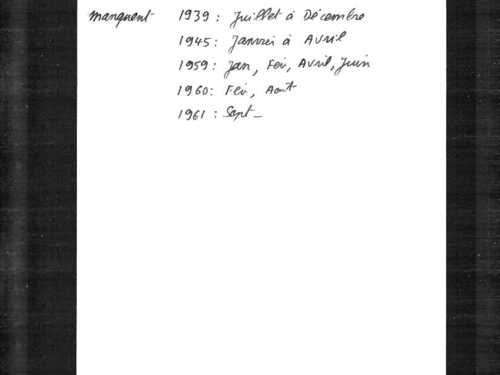 manquent 1939 : Juillet à Décembre
1945 : Janvier à Avril
1959 : Jan, Fev, Avril, Juin
1960 : Fev, Aout
1961 : Sept _